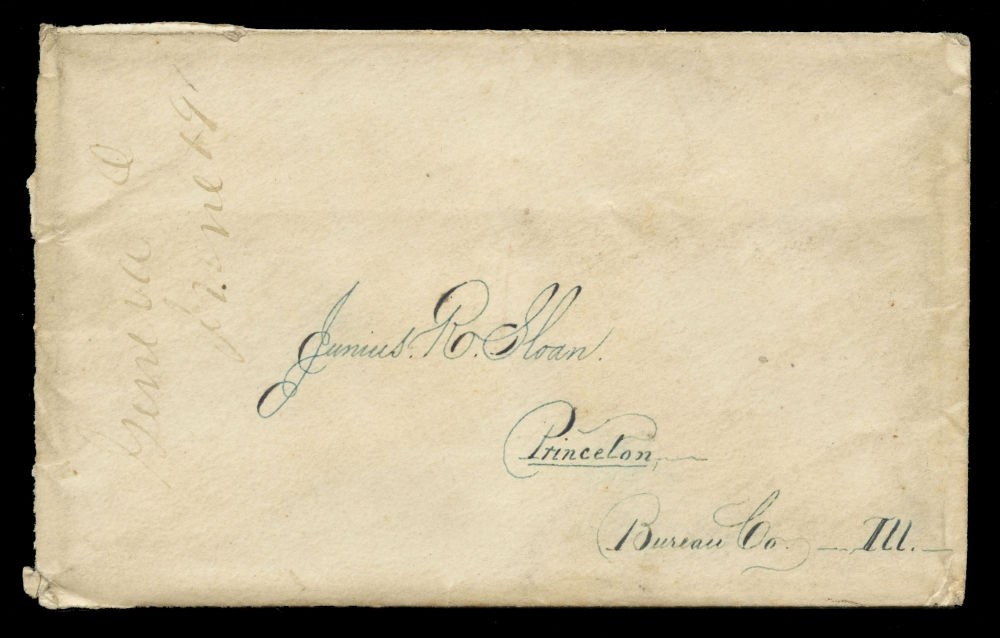 Geneva O
June 19
Junius. R. Sloan.
Princeton,
Bureau Co. Ill.